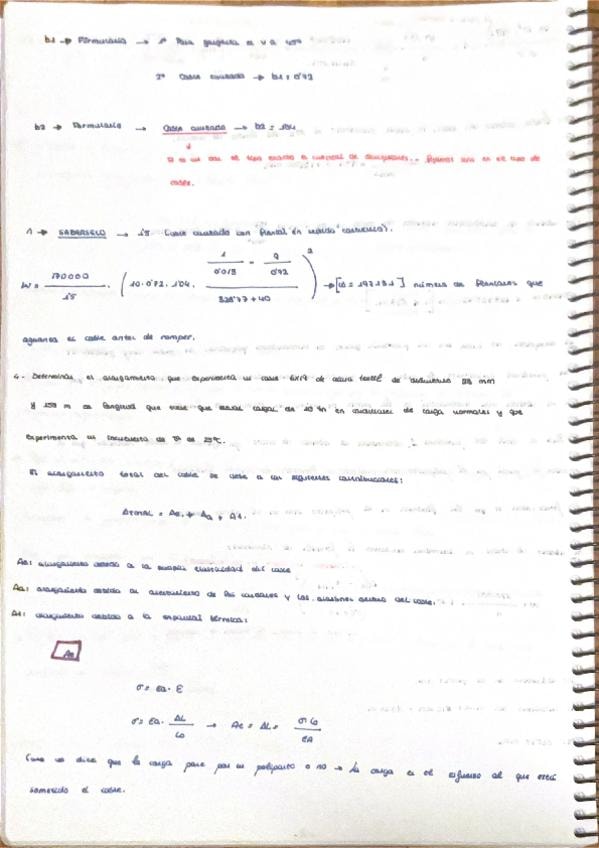 b1 → Formulario → 1º Para qué → v a 45º
2º Cable cruzado → b1 = 0'92
b2 → Formulario → Cable cruzado → b2 = 1'04
cable.
1 → SABERSELO → 1'5 (cable cruzado con
W = 170000 / 1'5 · ( 10 · 0'72 · 1'04 · (1/0'013 - 9/0'92) / (328'77 + 40) )² → [W = 197191] número de flexiones que
aguanta el cable antes de romper.
4.- Determinar el alargamiento que experimenta un cable 6x19 de alma textil de diámetro mm
y 150 m de longitud que tiene que elevar cargas de 10 tn en condiciones de carga normales y que
experimenta un incremento de Tª de 25ºC.
El alargamiento total del cable se debe a las siguientes contribuciones:
ΔTOTAL = Ae + Aa + At.
Ae: alargamiento debido a la propia elasticidad del cable
Aa: alargamiento debido al asentamiento de los cordones y los alambres dentro del cable.
At: alargamiento debido a la expansión térmica:
Ae
σ = Ea · ε
σ = Ea · ΔL / Lo → Ae = ΔL = σ Lo / EA
Como no dice que la carga pase por un polipasto o no → la carga es el esfuerzo al que está
sometido el cable.